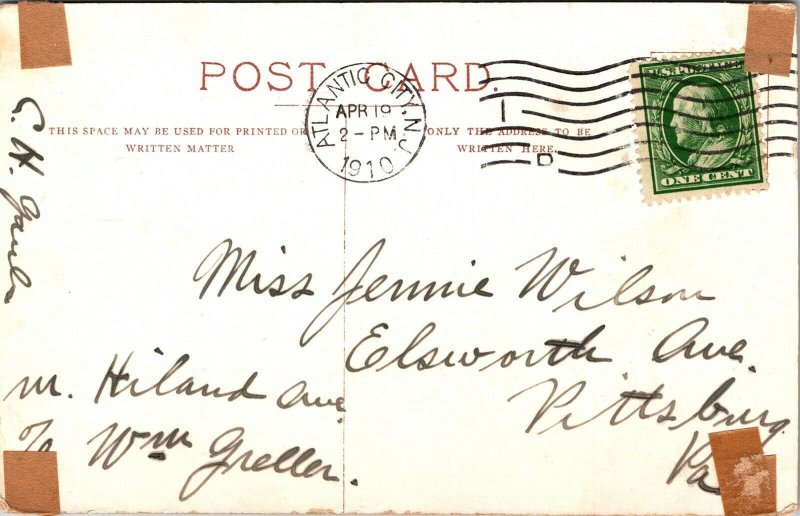 POST CARD.
THIS SPACE MAY BE USED FOR PRINTED OR
WRITTEN MATTER
ONLY THE ADDRESS TO BE
WRITTEN HERE.
ATLANTIC CITY, N.J.
APR 19
2-PM
1910
1
D
U.S. POSTAGE
ONE CENT
C. H.
Miss Jennie Wilson
Elsworth Ave.
Pittsburg
Pa
M. Hiland Ave
% Wm Greller.